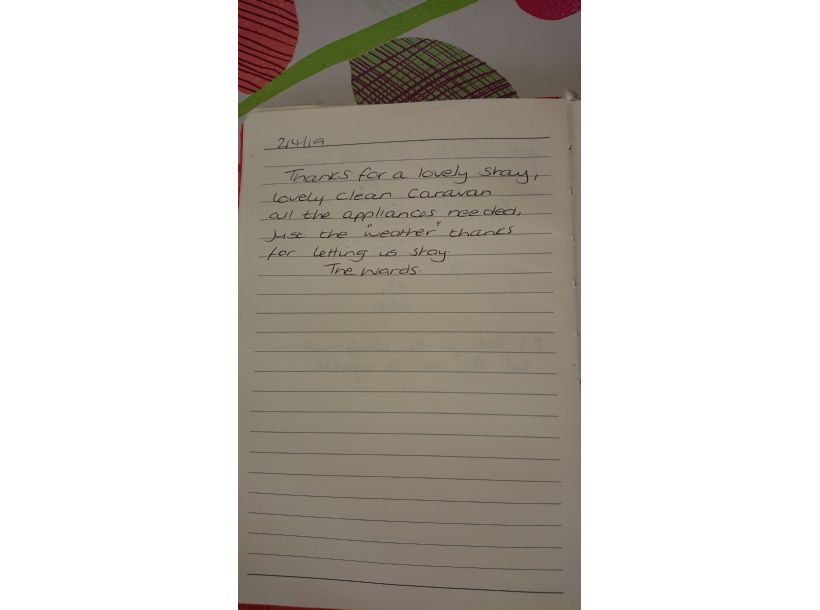 2/4/19
Thanks for a lovely stay,
lovely clean Caravan
all the appliances needed,
Just the "weather" thanks
for letting us stay.
The Wards.